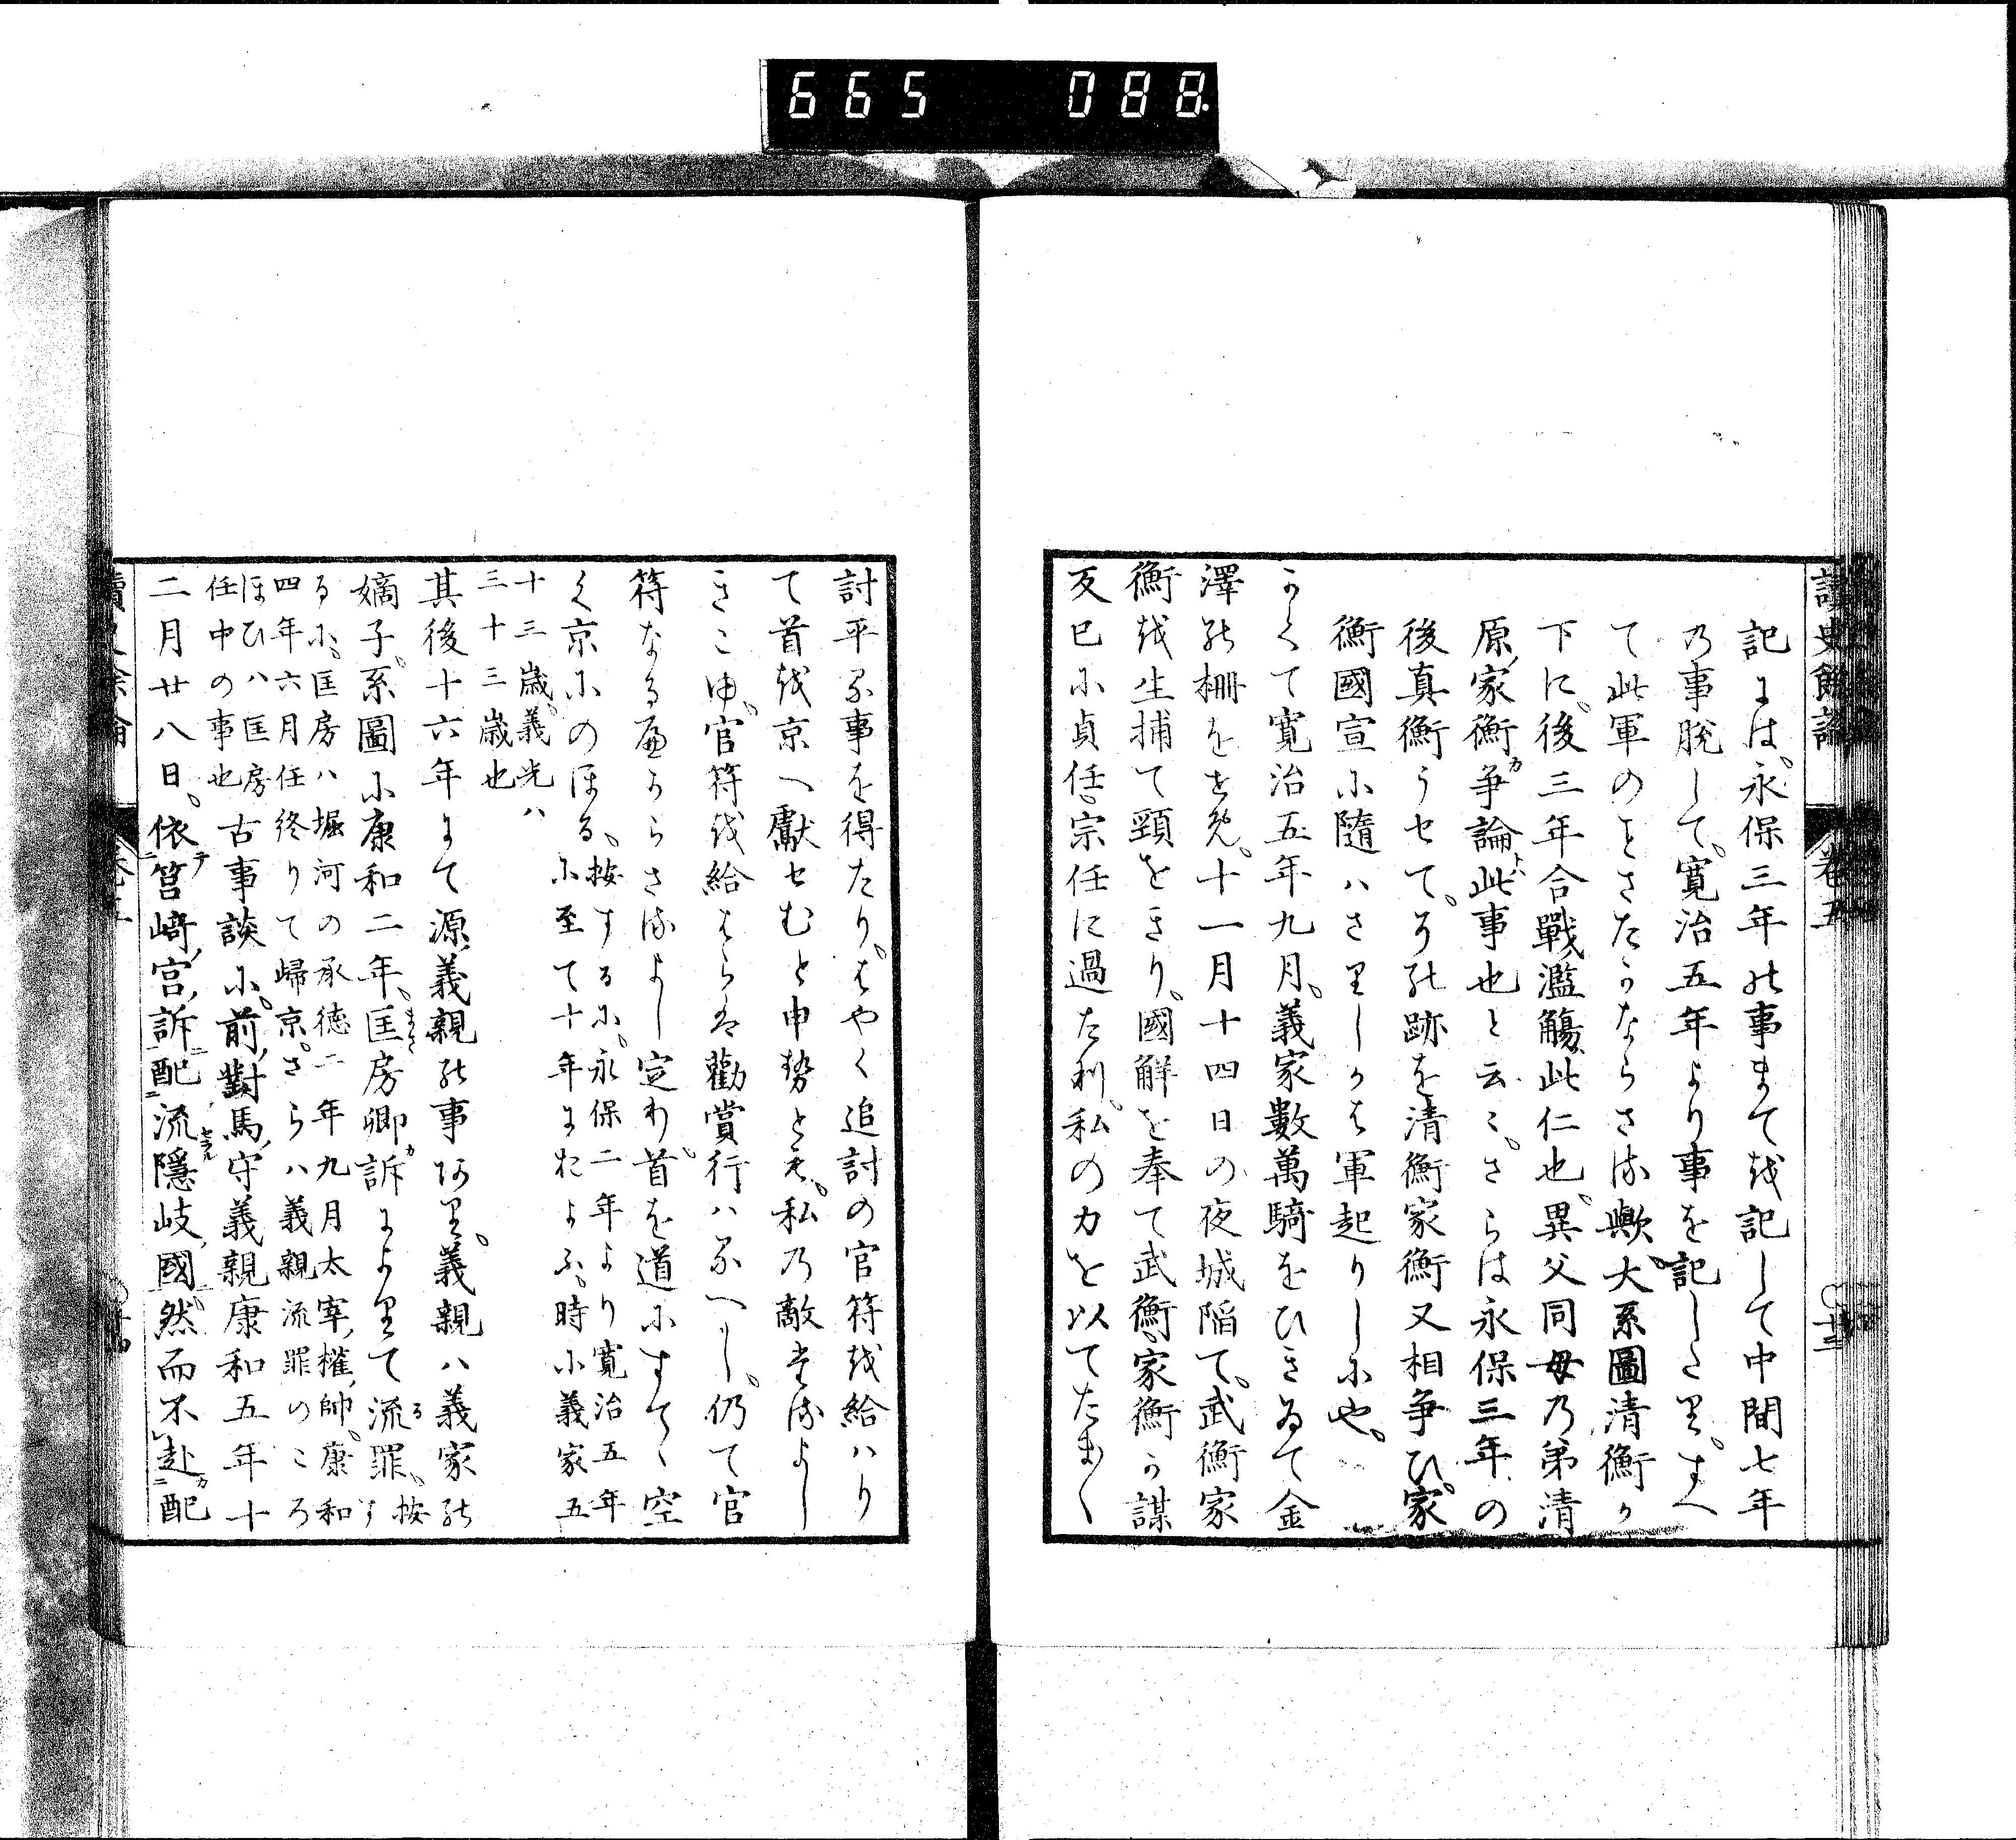 665 088
讀史餘論 卷五 十三
記には、永保三年の事まてを記して中間七年
の事脱して、寛治五年より事を記したり。すへ
て此軍のさたかならさる歟。大系圖清衡か
下に、後三年合戰濫觴、此仁也。異父同母の弟清
原家衡カ爭論、此事也と云々。さらは永保三年の
後真衡うせて、その跡を清衡家衡又相爭ひ、家
衡國宣に隨ハさりしかは軍起りしにや。
かくて寛治五年九月、義家數萬騎をひきゐて金
澤の柵をせめ、十一月十四日の夜城陥て、武衡家
衡を生捕て頸をきり、國解を奉て武衡家衡か謀
反已に貞任宗任に過たり。私の力を以てたまく
討平る事を得たり。はやく追討の官符を給ハり
て首を京へ獻せむと申せとも、私の敵たるよし
きこゆ。官符を給はらは勸賞行ハるへし。仍て官
符なるへからさるよし定め、首を道にすてゝ空
く京にのほる。按するに、永保二年より寛治五年
に至て十年におよふ。時に義家五
十三歳、義光ハ
三十三歳也
其後十六年にて源義親の事あり。義親ハ義家の
嫡子、系圖に康和二年、匡房卿カ訴によりて流罪ス。按す
るに、匡房ハ堀河の承徳二年九月太宰權帥、康和
四年六月任終りて歸京。さらハ義親流罪のころ
ほひハ匡房
任中の事也
古事談に、前對馬守義親康和五年十
二月廿八日、依筥﨑宮訴配流隱岐國。然而不赴配
讀史餘論 卷五 十四